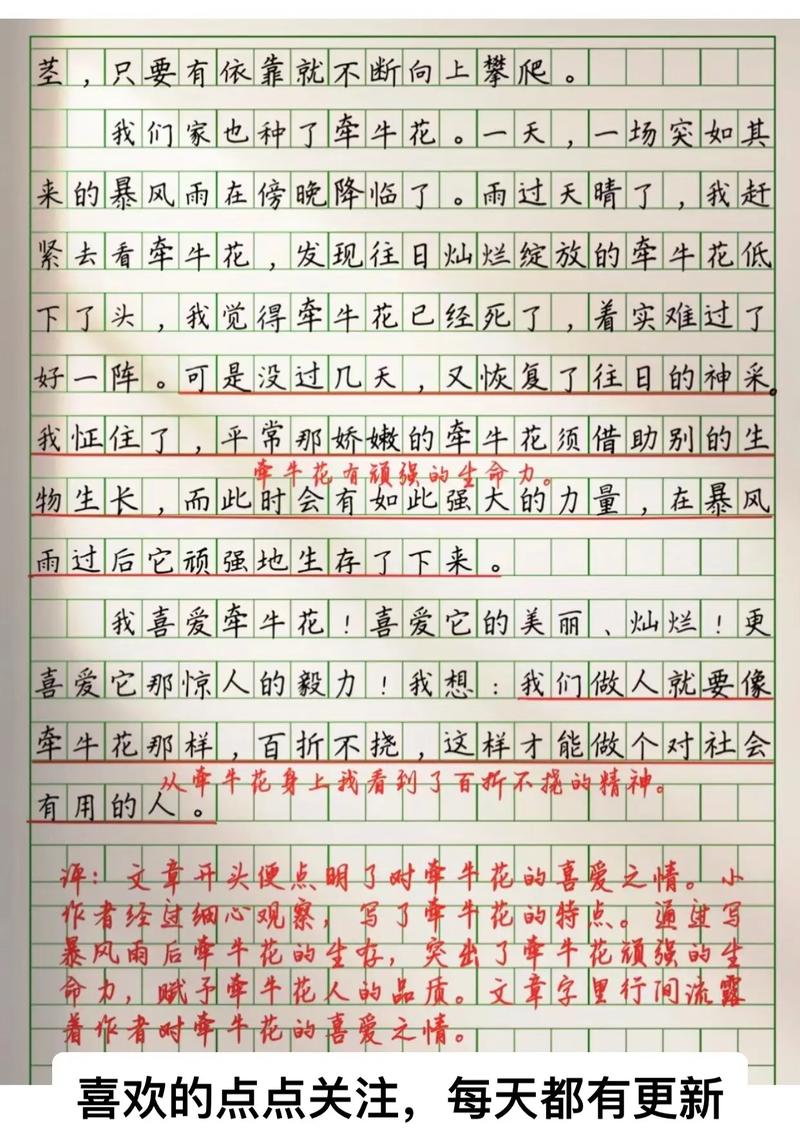 茎，只要有依靠就不断向上攀爬。
我们家也种了牵牛花。一天，一场突如其
来的暴风雨在傍晚降临了。雨过天晴了，我赶
紧去看牵牛花，发现往日灿烂绽放的牵牛花低
下了头，我觉得牵牛花已经死了，着实难过了
好一阵。可是没过几天，又恢复了往日的神采。
我怔住了，平常那娇嫩的牵牛花须借助别的生
牵牛花有顽强的生命力。
物生长，而此时会有如此强大的力量，在暴风
雨过后它顽强地生存了下来。
我喜爱牵牛花！喜爱它的美丽、灿烂！更
喜爱它那惊人的毅力！我想：我们做人就要像
牵牛花那样，百折不挠，这样才能做个对社会
从牵牛花身上我看到了百折不挠的精神。
有用的人。
评：文章开头便点明了对牵牛花的喜爱之情。小
作者经过细心观察，写了牵牛花的特点。通过写
暴风雨后牵牛花的生存，突出了牵牛花顽强的生
命力，赋予牵牛花人的品质。文章字里行间流露
着作者对牵牛花的喜爱之情。
喜欢的点点关注，每天都有更新